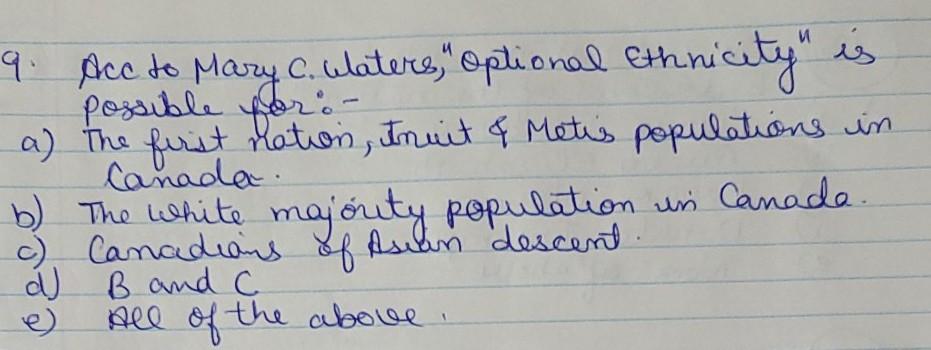 9. Acc to Mary C. Waters, "Optional Ethnicity" is
possible for:-
a) The first Nation, Inuit & Metis populations in
Canada.
b) The white majority population in Canada.
c) Canadians of Asian descent.
d) B and C
e) All of the above.